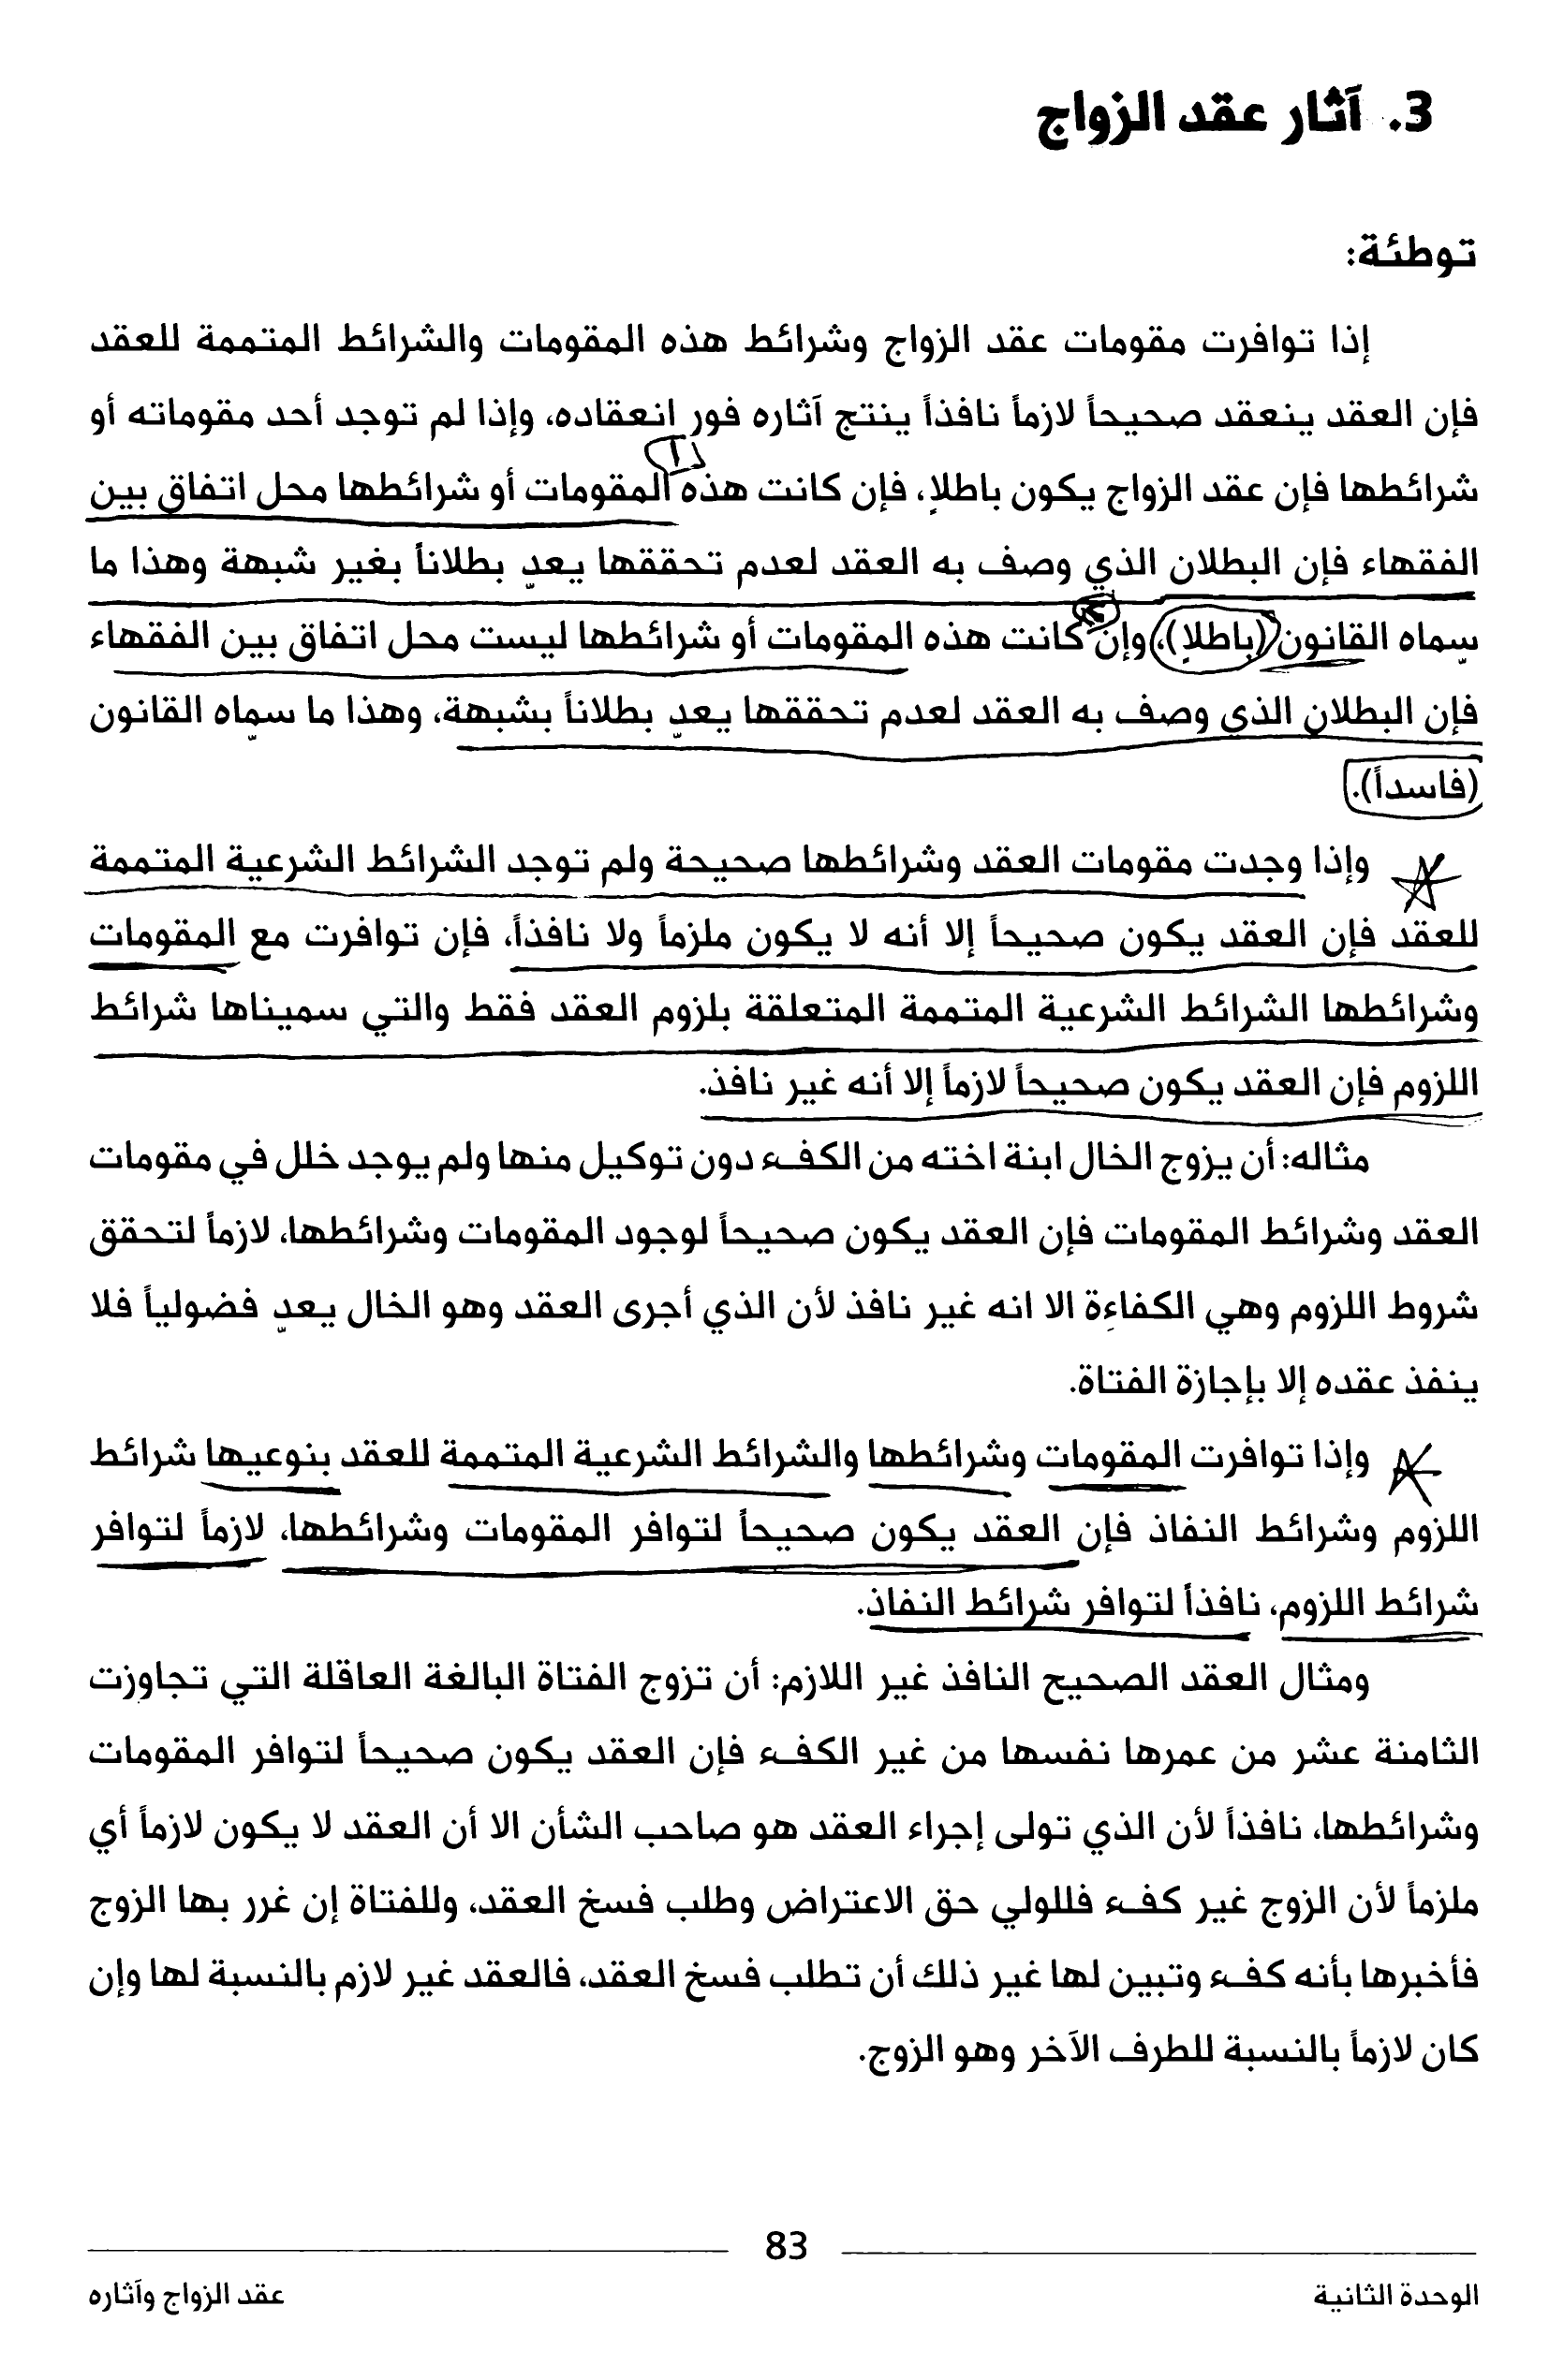 3. آثار عقد الزواج
توطئة:
إذا توافرت مقومات عقد الزواج وشرائط هذه المقومات والشرائط المتممة للعقد
فإن العقد ينعقد صحيحاً لازماً نافذاً ينتج آثاره فور انعقاده، وإذا لم توجد أحد مقوماته أو
شرائطها فإن عقد الزواج يكون باطلاً، فإن كانت هذه المقومات أو شرائطها محل اتفاق بين
الفقهاء فإن البطلان الذي وصف به العقد لعدم تحققها يعدّ بطلاناً بغير شبهة وهذا ما
سمّاه القانون (باطلاً)، وإن كانت هذه المقومات أو شرائطها ليست محل اتفاق بين الفقهاء
فإن البطلان الذي وصف به العقد لعدم تحققها يعدّ بطلاناً بشبهة، وهذا ما سمّاه القانون
(فاسداً).
وإذا وجدت مقومات العقد وشرائطها صحيحة ولم توجد الشرائط الشرعية المتممة
للعقد فإن العقد يكون صحيحاً إلا أنه لا يكون ملزماً ولا نافذاً، فإن توافرت مع المقومات
وشرائطها الشرائط الشرعية المتممة المتعلقة بلزوم العقد فقط والتي سميناها شرائط
اللزوم فإن العقد يكون صحيحاً لازماً إلا أنه غير نافذ.
مثاله: أن يزوج الخال ابنة اخته من الكفء دون توكيل منها ولم يوجد خلل في مقومات
العقد وشرائط المقومات فإن العقد يكون صحيحاً لوجود المقومات وشرائطها، لازماً لتحقق
شروط اللزوم وهي الكفاءة الا انه غير نافذ لأن الذي أجرى العقد وهو الخال يعدّ فضولياً فلا
ينفذ عقده إلا بإجازة الفتاة.
وإذا توافرت المقومات وشرائطها والشرائط الشرعية المتممة للعقد بنوعيها شرائط
اللزوم وشرائط النفاذ فإن العقد يكون صحيحاً لتوافر المقومات وشرائطها، لازماً لتوافر
شرائط اللزوم، نافذاً لتوافر شرائط النفاذ.
ومثال العقد الصحيح النافذ غير اللازم: أن تزوج الفتاة البالغة العاقلة التي تجاوزت
الثامنة عشر من عمرها نفسها من غير الكفء فإن العقد يكون صحيحاً لتوافر المقومات
وشرائطها، نافذاً لأن الذي تولى إجراء العقد هو صاحب الشأن الا أن العقد لا يكون لازماً أي
ملزماً لأن الزوج غير كفء فللولي حق الاعتراض وطلب فسخ العقد، وللفتاة إن غرر بها الزوج
فأخبرها بأنه كفء وتبين لها غير ذلك أن تطلب فسخ العقد، فالعقد غير لازم بالنسبة لها وإن
كان لازماً بالنسبة للطرف الآخر وهو الزوج.
83
الوحدة الثانية
عقد الزواج وآثاره